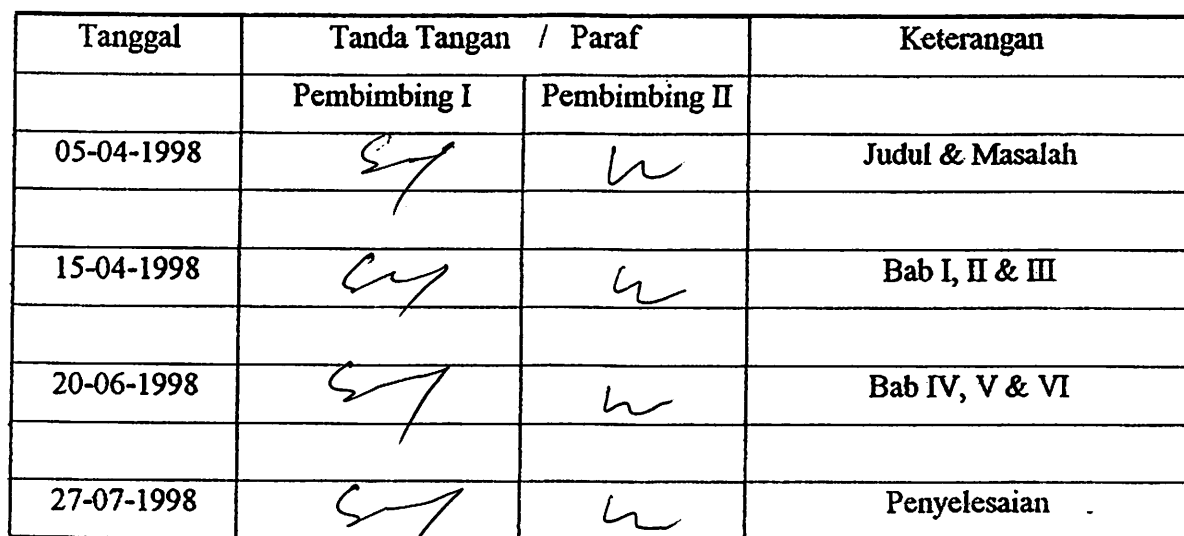 Tanggal Tanda Tangan / Paraf Keterangan
Pembimbing I Pembimbing II
05-04-1998 Judul & Masalah
15-04-1998 Bab I, II & III
20-06-1998 Bab IV, V & VI
27-07-1998 Penyelesaian